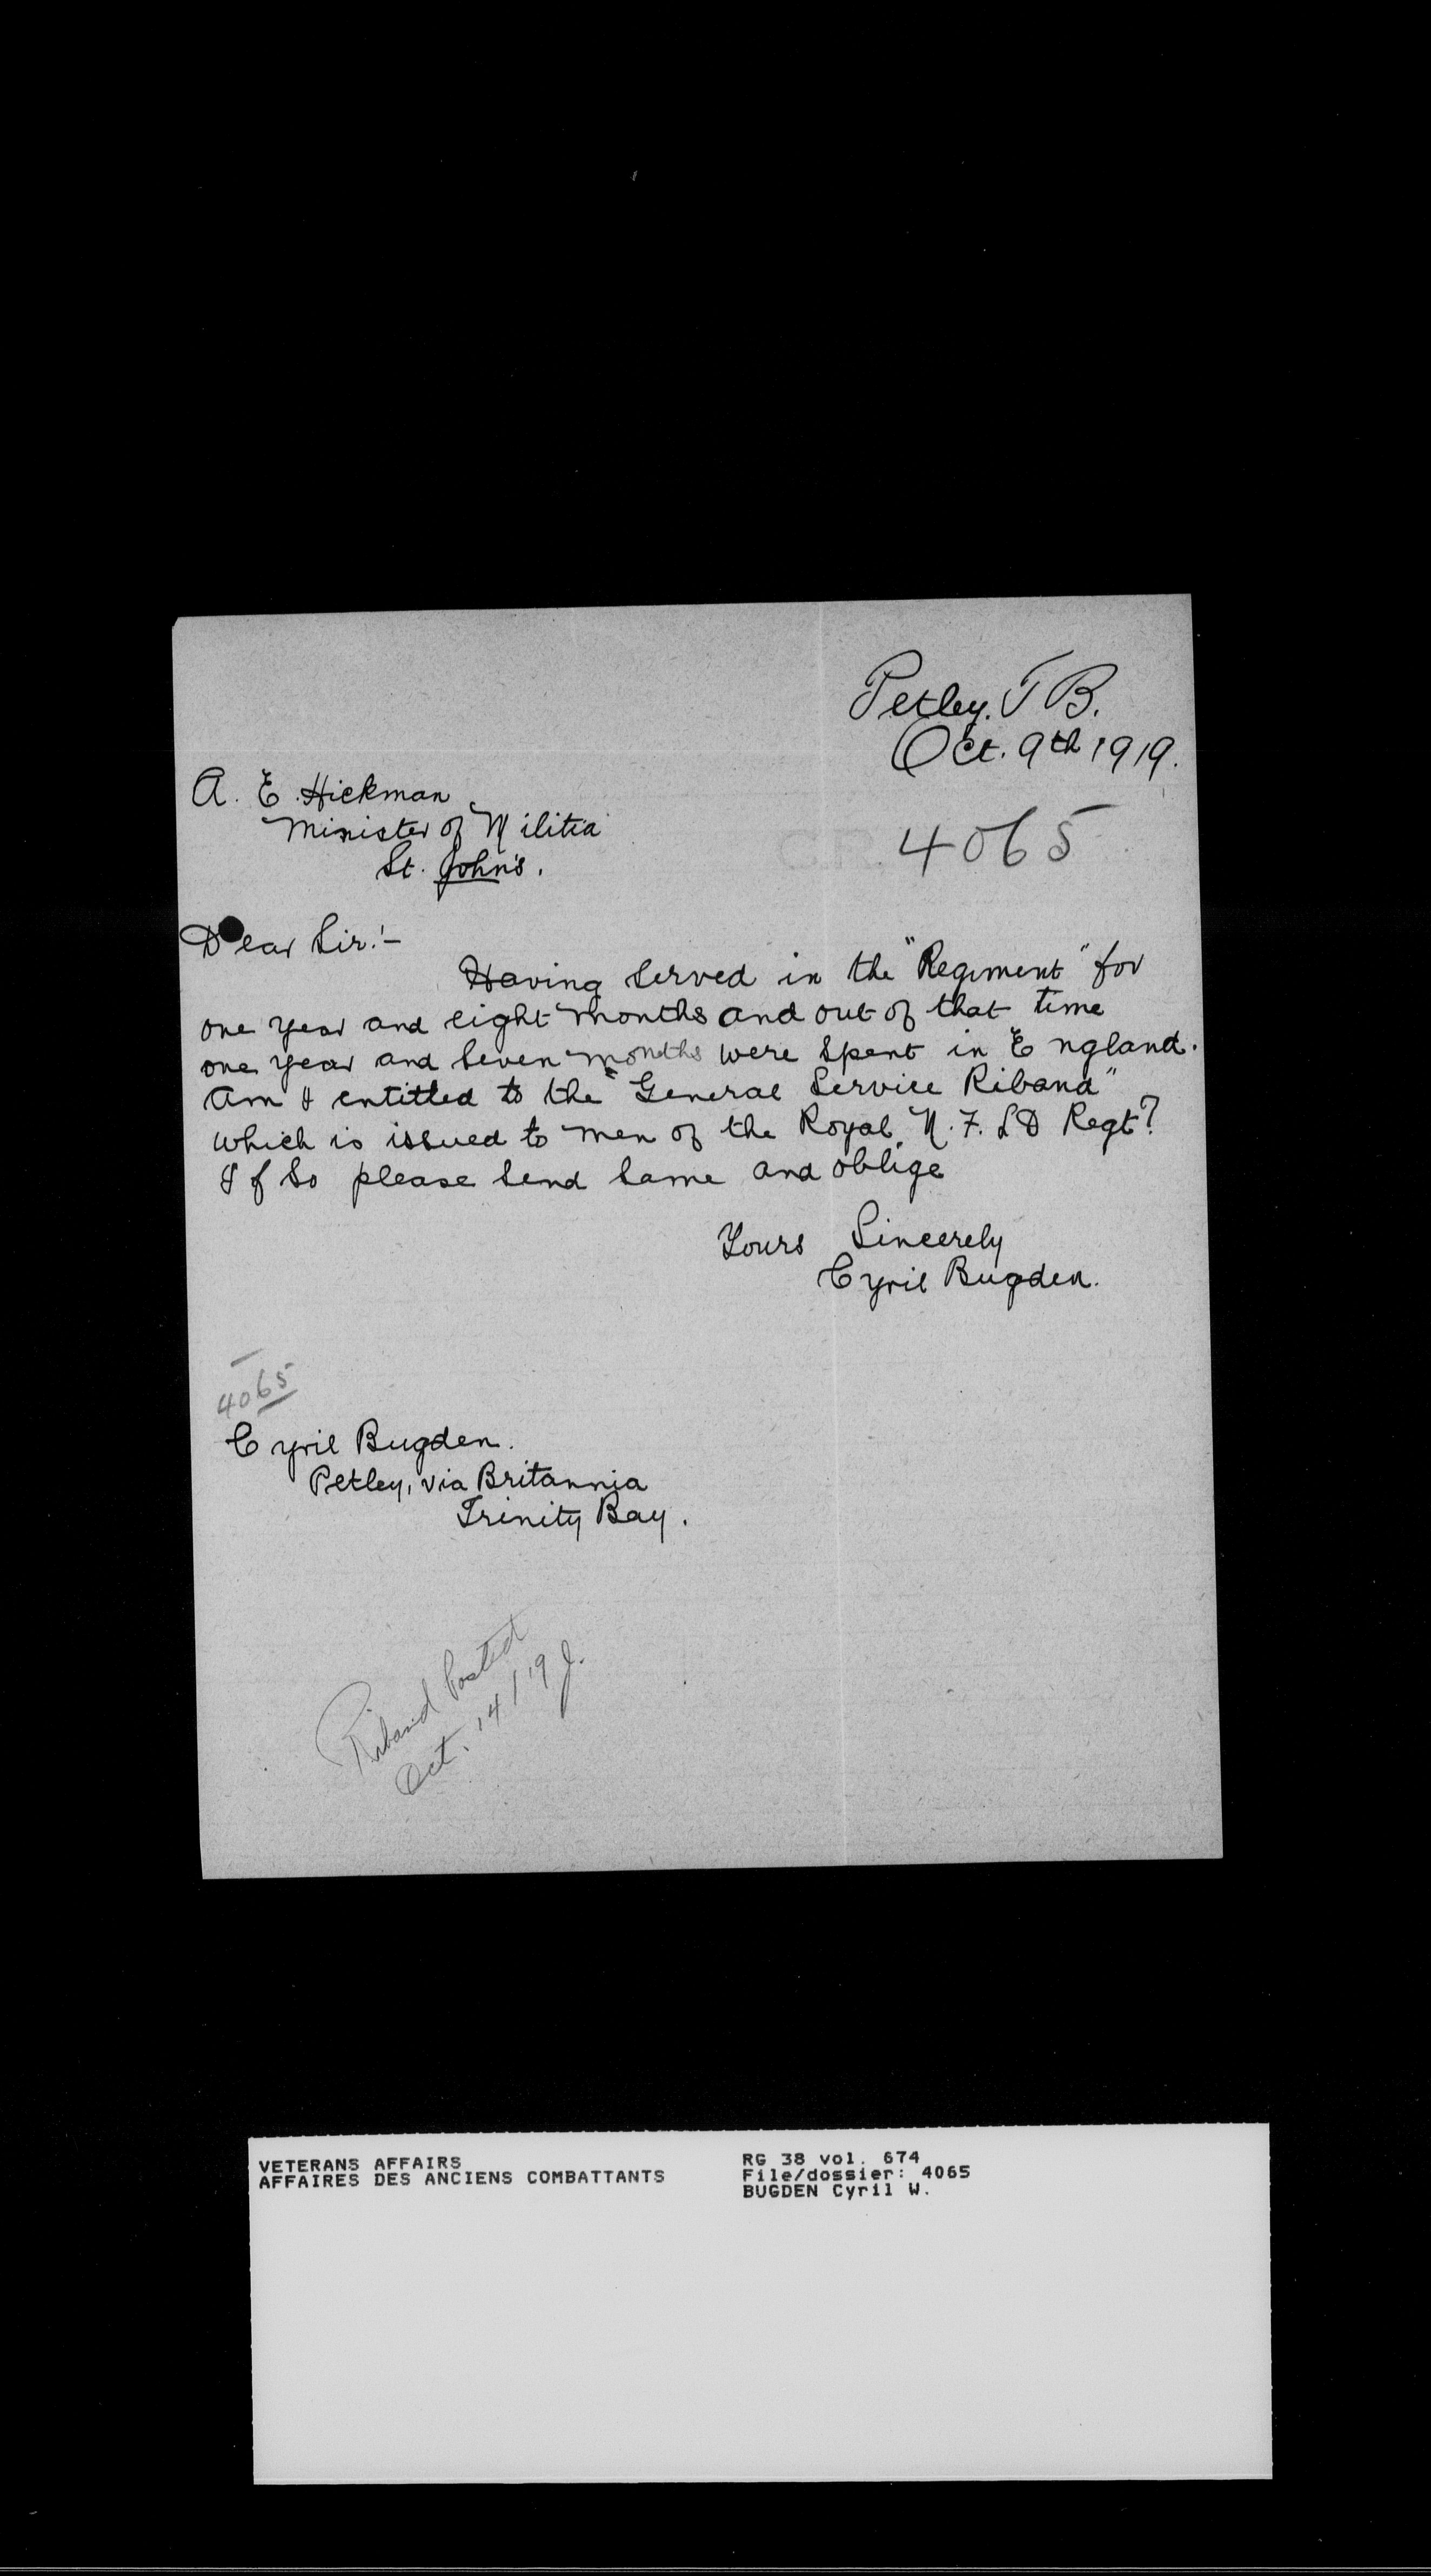 Petley. T B.
Oct. 9th 1919.
A. E. Hickman
Minister of Militia
St. John's.
C.R. 4065
Dear Sir:-
Having served in the "Regiment" for
one year and eight months and out of that time
one year and seven months were spent in England.
Am I entitled to the "General Service Riband"
which is issued to men of the Royal N.F.LD Regt?
If so please send same and oblige
Yours Sincerely
Cyril Bugden.
4065
Cyril Bugden.
Petley, via Britannia
Trinity Bay.
Riband Posted
Oct. 14/19 J.
VETERANS AFFAIRS
AFFAIRES DES ANCIENS COMBATTANTS
RG 38 vol. 674
File/dossier: 4065
BUGDEN Cyril W.